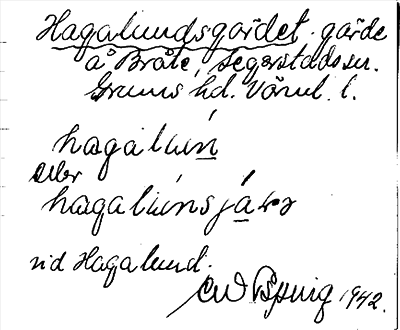 Hagalundsgärdet. gärde
å Bråte, Segerstads sn.
Grums hd. Värml. l.
hagalun
eller
hagalúnsjá
vid Hagalund.
1942.